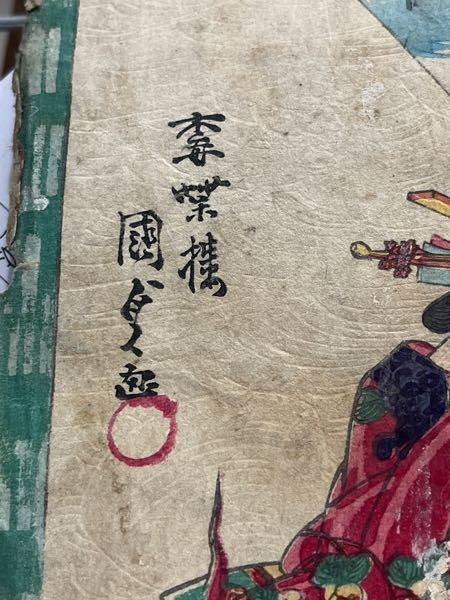 梅蝶楼
國貞画